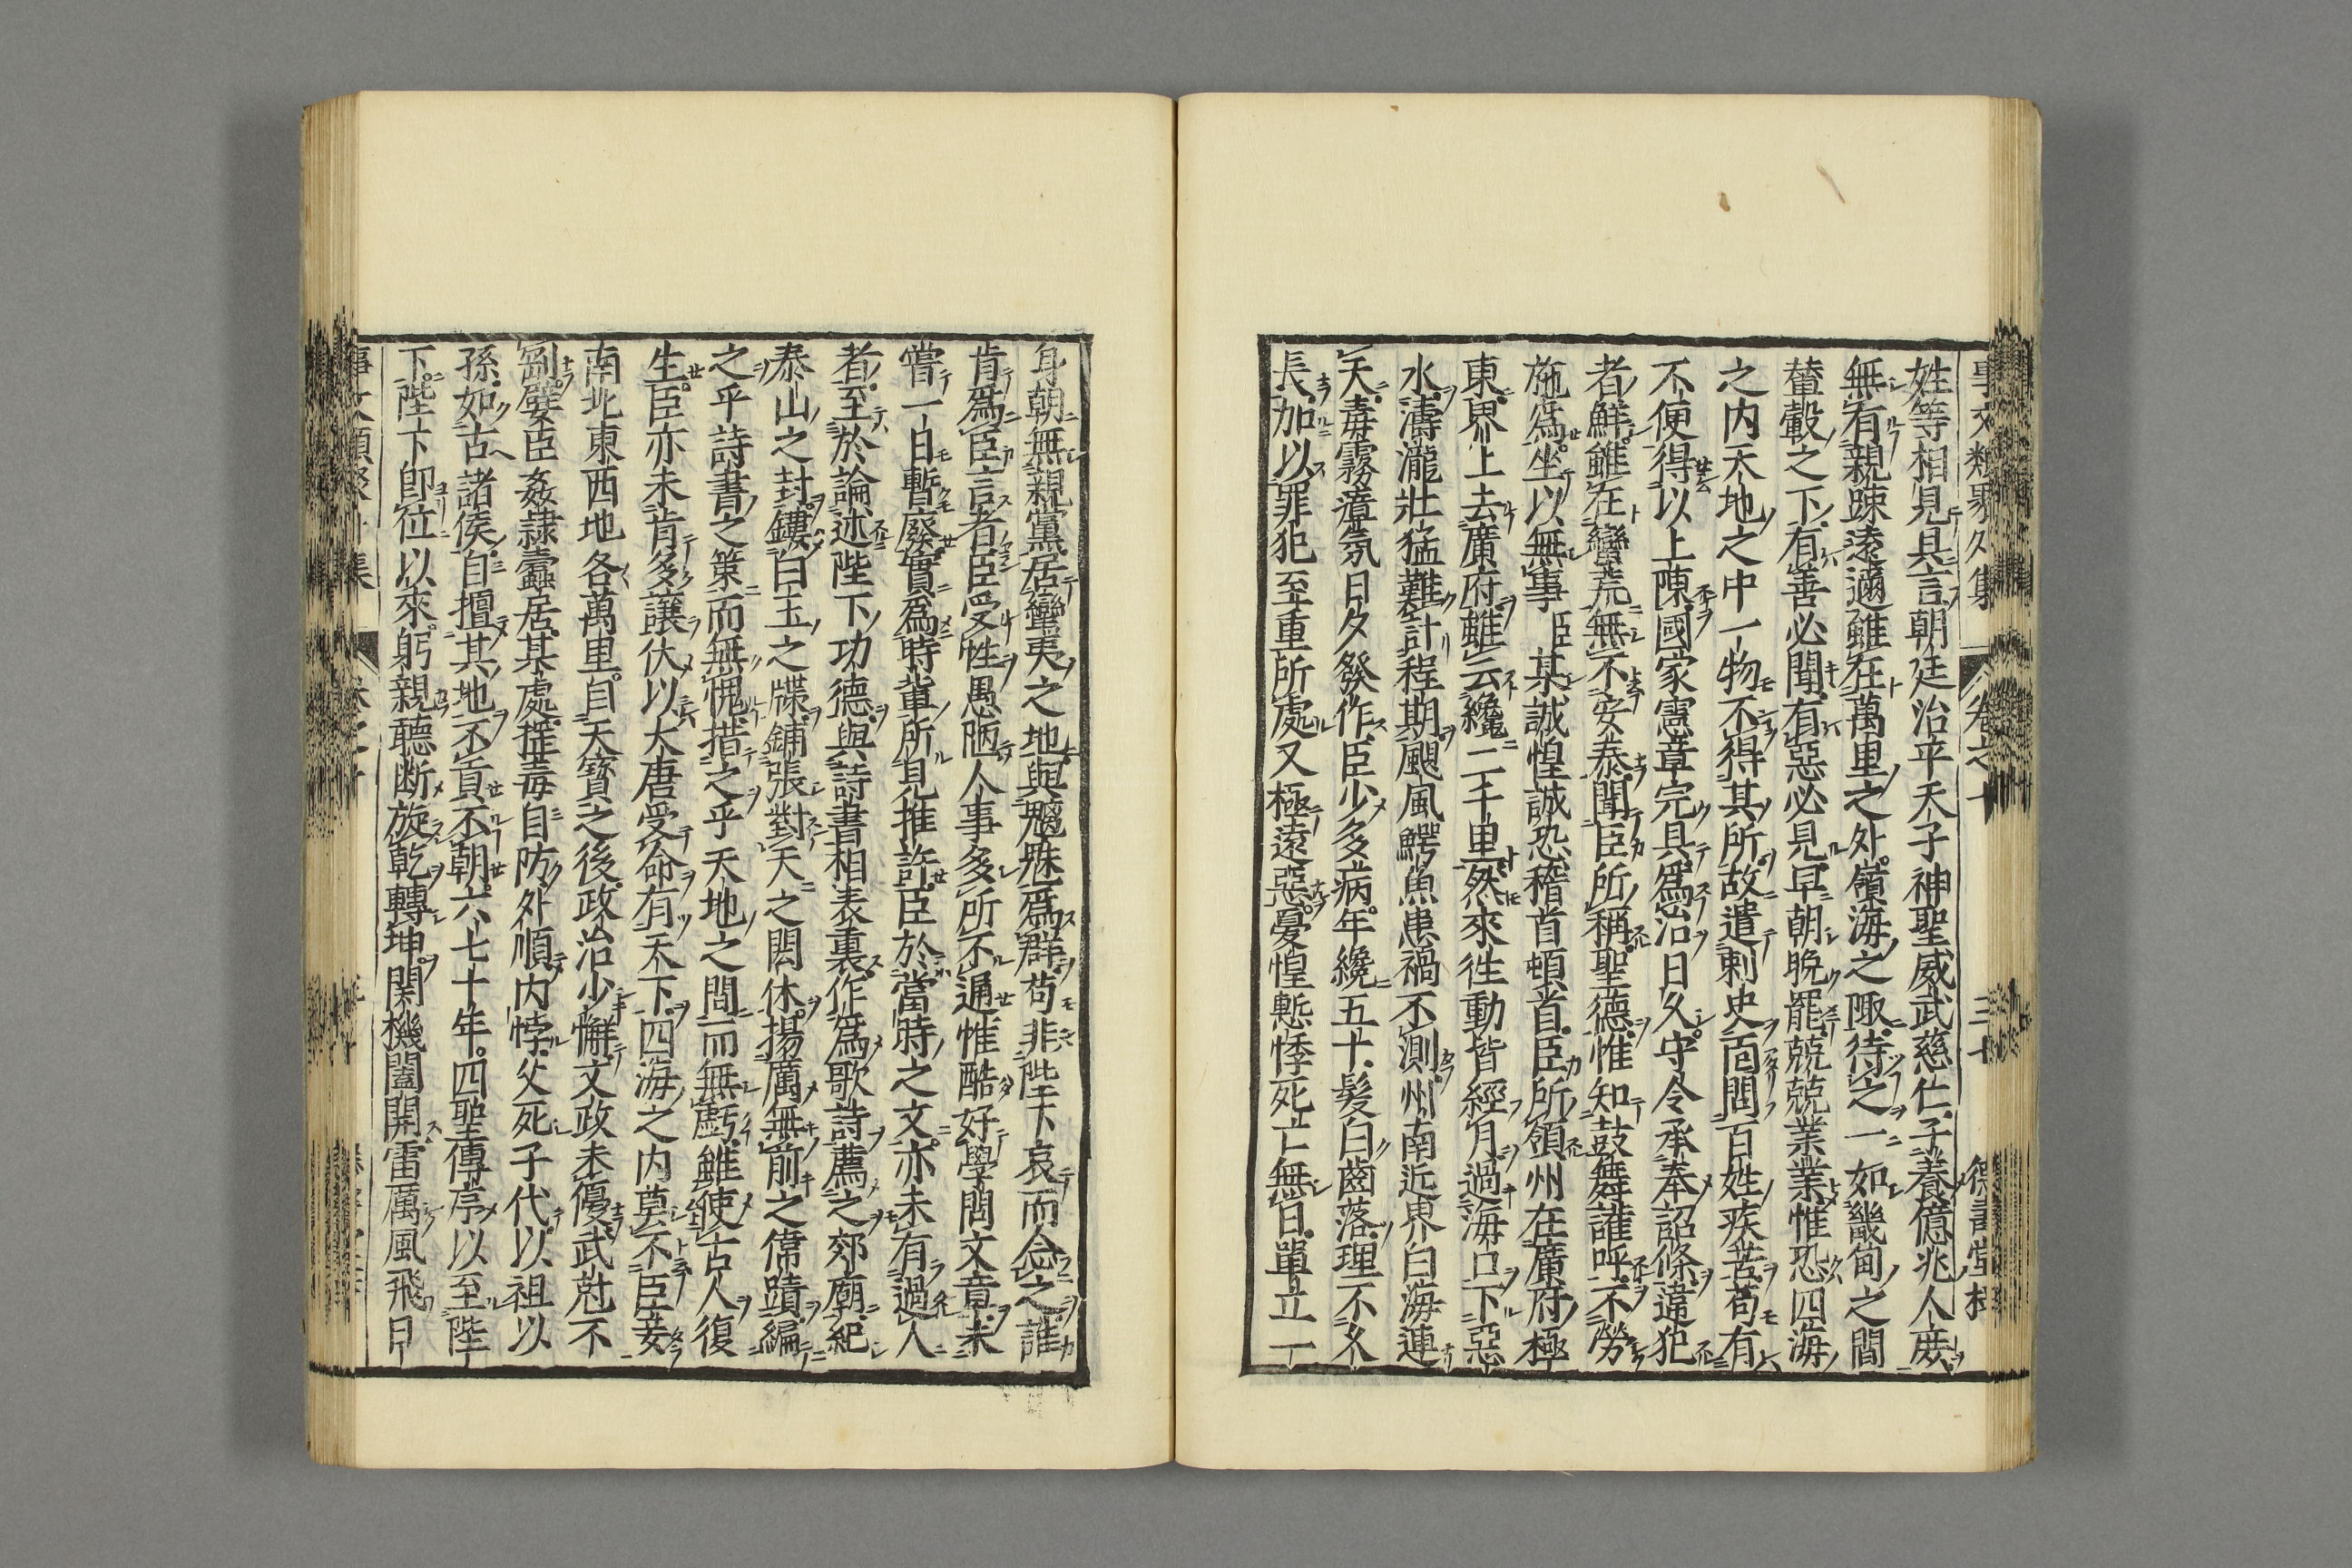 事文類聚外集 卷之十 三十 德壽堂梓
姓等相見具言朝廷治平天子神聖威武慈仁子養億兆人庶
無有親踈遠邇雖在萬里之外嶺海之陬待之一如畿甸之間
輦轂之下有善必聞有惡必見早朝晚罷兢兢業業惟恐四海
之内天地之中一物不得其所故遣刺史面問百姓疾苦苟有
不便得以上陳國家憲章完具爲治日久守令承奉詔條違犯
者鮮雖在蠻荒無不安泰聞臣所稱聖德惟知鼓舞讙呼不勞
施爲坐以無事臣某誠惶誠恐稽首頓首臣所領州在廣府極
東界上去廣府雖云纔二千里然來徃動皆經月過海口下惡
水濤瀧壯猛難計程期颶風鰐魚患禍不測州南近界白海連
天毒霧瘴氛日夕發作臣少多病年纔五十髮白齒落理不久
長加以罪犯至重所處又極遠惡憂惶慙悸死亡無日單立一
身朝無親黨居蠻夷之地與魑魅爲群苟非陛下哀而念之誰
肯爲臣言者臣受性愚陋人事多所不通惟酷好學問文章未
嘗一日暫廢實爲時輩所見推許臣於當時之文亦未有過人
者至於論述陛下功德與詩書相表裏作爲歌詩薦之郊廟紀
泰山之封鏤白玉之牒鋪張對天之閎休揚厲無前之偉蹟編
之乎詩書之策而無愧措之乎天地之間而無虧雖使古人復
生臣亦未肯多讓伏以大唐受命有天下四海之内莫不臣妾
南北東西地各萬里自天寳之後政治少懈文政未優武尅不
剛孼臣姦隷蠹居某處揺毒自防外順内悖父死子代以祖以
孫如古諸侯自擅其地不貢不朝六七十年四聖傳序以至陛
下陛下卽位以來躬親聽断旋乾轉坤関機闔開雷厲風飛日